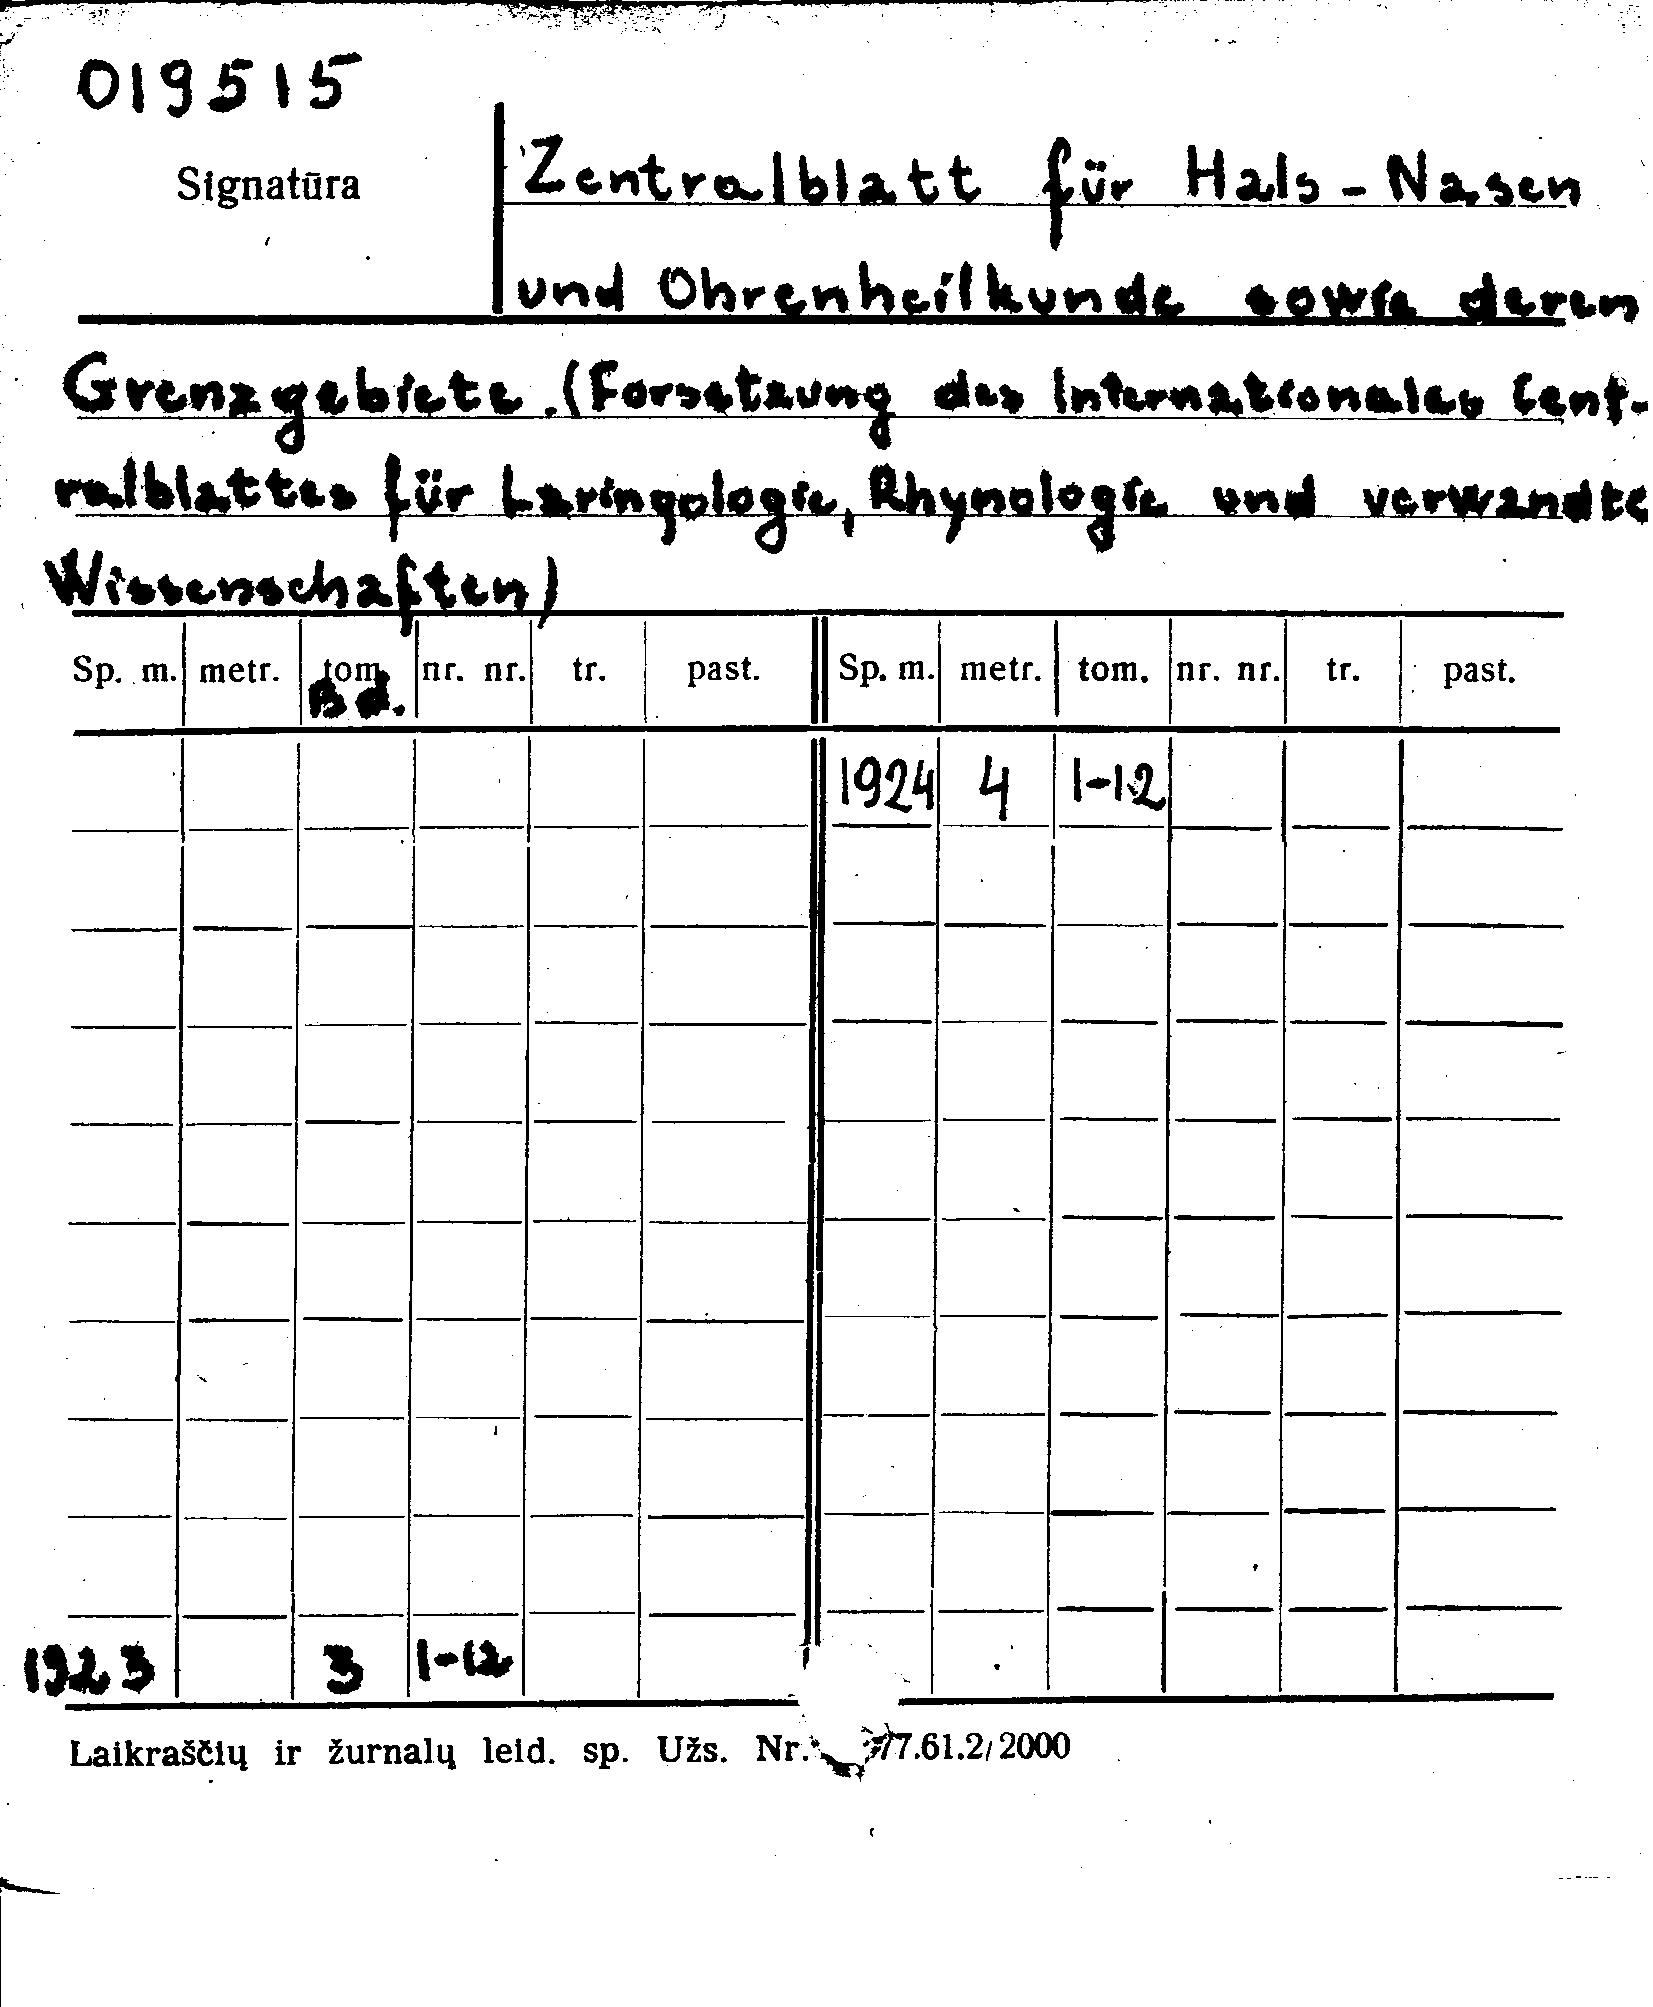 019515
Signatūra
Zentralblatt für Hals-Nasen
und Ohrenheilkunde sowie deren
Grenzgebiete. (Forsetzung des Internationales Cent-
ralblattes für Laringologie, Rhynologie und verwandte
Wissenschaften)
Sp. m. metr. tom. nr. nr. tr. past. Sp. m. metr. tom. nr. nr. tr. past.
Bd.
1924 4 1-12
1923 3 1-12
Laikraščių ir žurnalų leid. sp. Užs. Nr. 77.61.2/2000